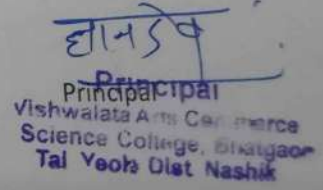 Principal
Principal
Vishwalata Arts Commerce
Science College, Bhatgaon
Tal Yeola Dist Nashik